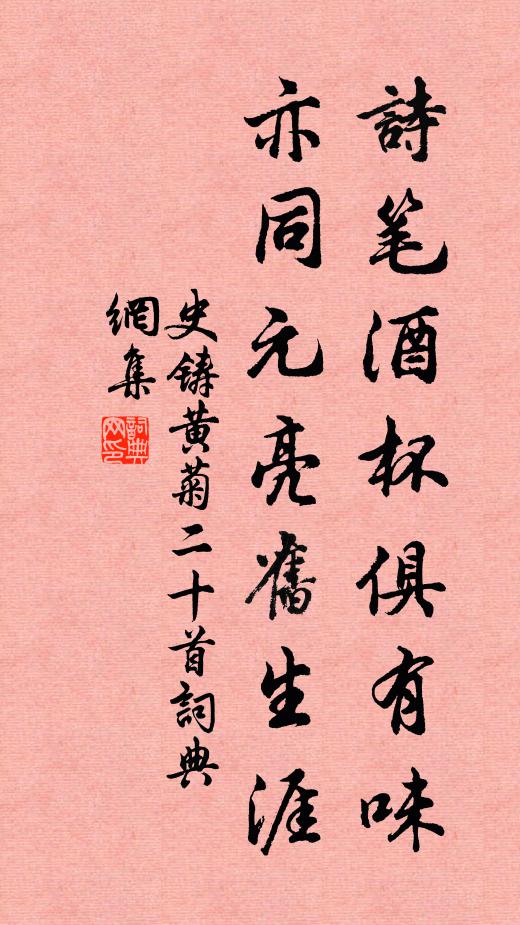 詩笔酒杯俱有味
亦同元亮舊生涯
史铸黄菊二十首詞典
網集
詞典
网印